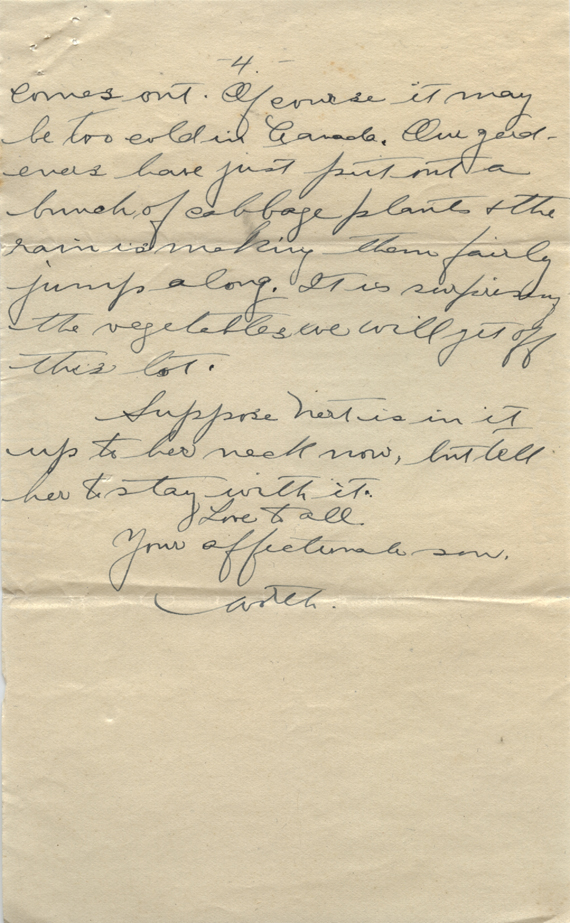 -4.-
comes out. Of course it may
be too cold in Canada. Our gard-
eners have just put out a
bunch of cabbage plants & the
rain is making them fairly
jump along. It is surprising
the vegetables we will get off
this lot.
Suppose is in it
up to her neck now, but tell
her to stay with it.
Love to all.
Your affectionate son.